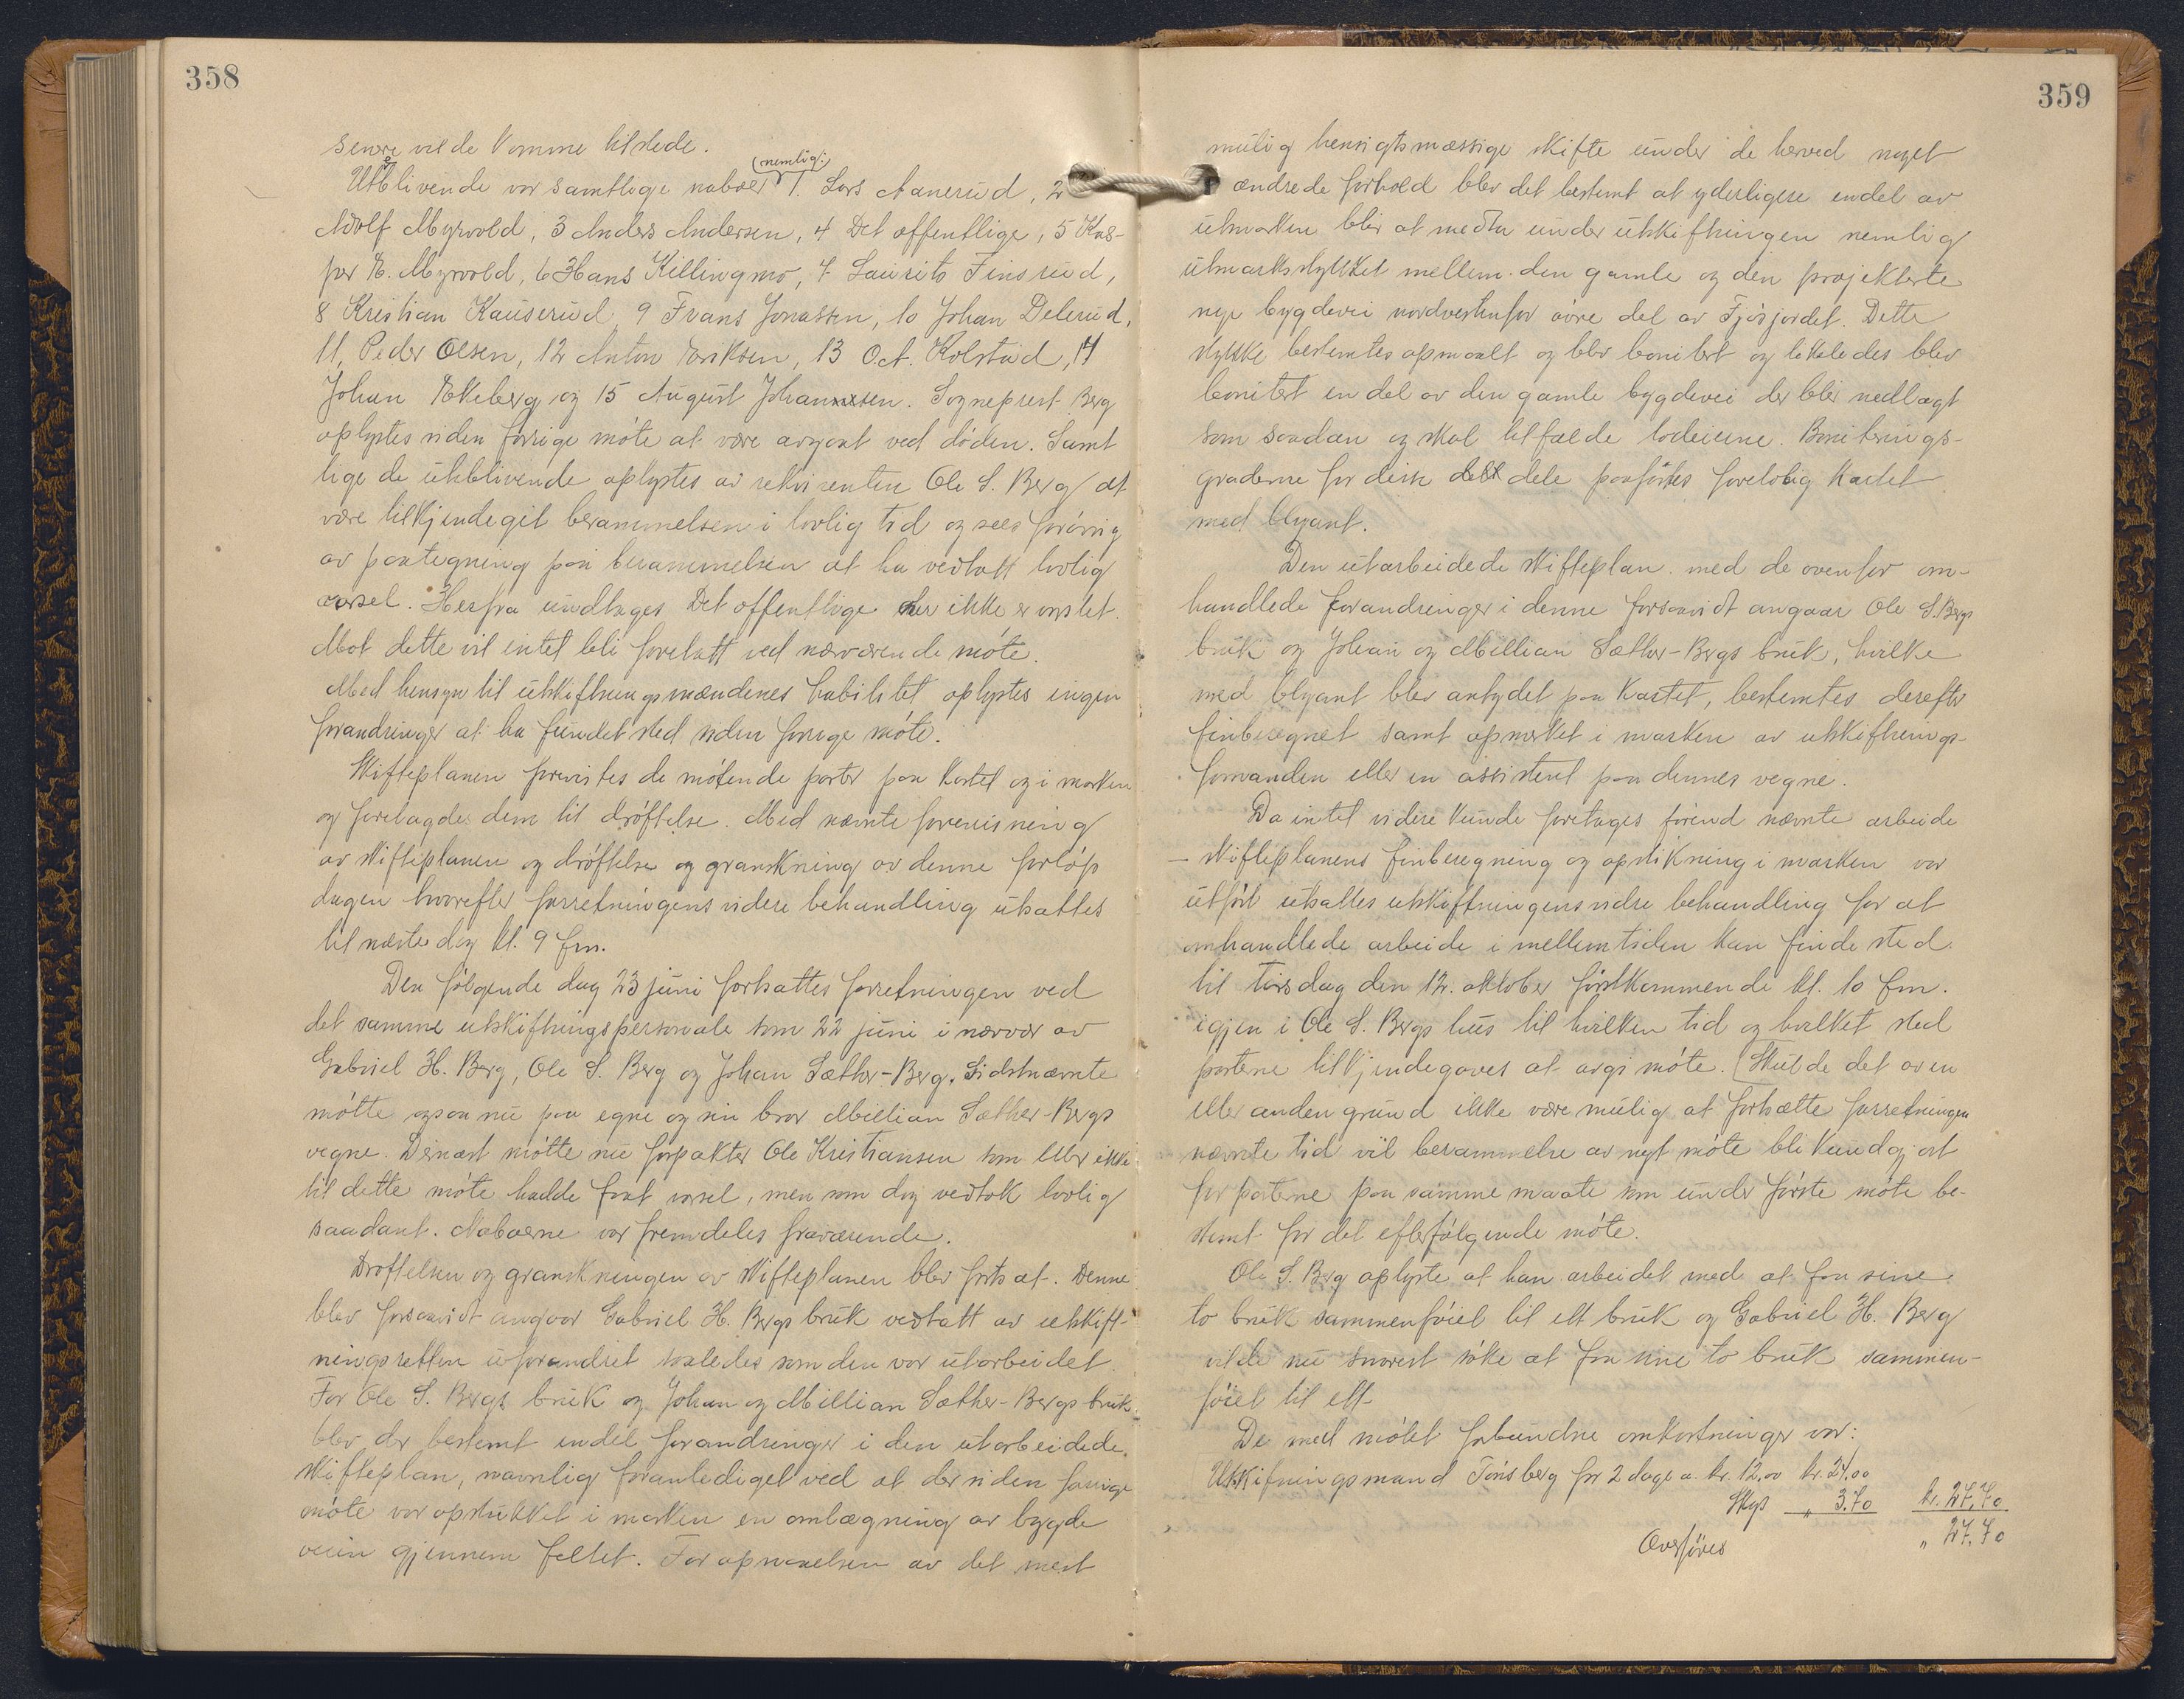 358
senere vilde komme tilstede.
Uteblivende var samtlige naboer (nemlig:) 1. Lars Aanerud, 2
Adolf Myrvold, 3 Anders Andersen, 4 Det offentlige, 5 Kas-
per E. Myrvold, 6 Hans Killingmo, 7 Laurits Finsrud,
8 Kristian Kauserud 9 Frans Jonassen, 10 Johan Delerud,
11, Peder Olsen, 12 Anton Eriksen, 13 O.A. Kolstad, 14
Johan Ekeberg og 15 August Johannesen. Sogneprest Berg
oplystes siden forrige møte at være avgaat ved døden. Samt
lige de uteblivende oplystes av rekvirenten Ole S. Berg at
være tilkjendegit berammelsen i lovlig tid og sees forøvrig
av paategning paa berammelsen at ha vedtatt lovlig
varsel. Herfra undtages Det offentlige der ikke er varslet.
Mot dette vil intet bli foretatt ved nærværende møte.
Med hensyn til utskiftningsmændenes habilitet oplystes ingen
forandringer at ha fundet sted siden forrige møte.
Skifteplanen forevistes de møtende parter paa kartet og i marken
og forelagdes dem til drøftelse. Med nævnte forevisning
av skifteplanen og drøftelse og granskning av denne forløp
dagen hvorefter forretningens videre behandling utsattes
til næste dag kl. 9 fm.
Den følgende dag 23 juni fortsattes forretningen ved
det samme utskiftningspersonale som 22 juni i nærvær av
Gabriel H. Berg, Ole S. Berg og Johan Sæther-Berg. Sidstnævnte
møtte ogsaa nu paa egne og sin bror Millian Sæther-Bergs
vegne. Dernæst møtte nu forpakter Ole Kristiansen som eller ikke
til dette møte hadde faat varsel, men som dog vedtok lovlig
saadant. Naboerne var fremdeles fraværende.
Drøftelsen og granskningen av skifteplanen blev fortsat. Denne
blev forsaavidt angaar Gabriel H. Bergs bruk vedtatt av utskift-
ningsretten uforandret saaledes som den var utarbeidet.
For Ole S. Bergs bruk og Johan og Millian Sæther-Bergs bruk
blev der bestemt endel forandringer i den utarbeidede
skifteplan, navnlig foranlediget ved at der siden forrige
møte var opstukket i marken en omlægning av bygde
veien gjennem feltet. For opnaaelsen av det mest
359
mulig hensigtsmæssige skifte under de herved noget
ændrede forhold blev det bestemt at yderligere endel av
utmarken blir at medta under utskiftningen nemlig
utmarksstykket mellem den gamle og den projekterte
nye bygdevei nordvestenfor øvre del av Fjøsjordet. Dette
stykke bestemtes opmaalt og blev bonitert og likeledes blev
bonitert en del av den gamle bygdevei der blir nedlagt
som saadan og skal tilfalde lodeierne. Boniterings-
graderne for disse dele paaførtes foreløbig kartet
med blyant.
Den utarbeidede skifteplan med de ovenfor om-
handlede forandringer i denne forsaavidt angaar Ole S. Bergs
bruk og Johan og Millian Sæther-Bergs bruk, hvilke
med blyant blev antydet paa kartet, bestemtes derefter
finberegnet samt opmerket i marken av utskiftnings-
formanden eller en assistent paa dennes vegne.
Da intet videre kunde foretages førend nævnte arbeide
– skifteplanens finberegning og opstikning i marken var
utført utsattes utskiftningens videre behandling for at
omhandlede arbeide i mellemtiden kan finde sted
til tirsdag den 12. oktober førstkommende kl. 10 fm.
igjen i Ole S. Bergs hus til hvilken tid og hvilket sted
parterne tilkjendegaves at avgi møte. Skulde det av en
eller anden grund ikke være mulig at fortsætte forretningen
nævnte tid vil berammelse av nyt møte bli kundgjort
for parterne paa samme maate som under første møte be-
stemt for det efterfølgende møte.
Ole S. Berg oplyste at han arbeidet med at faa sine
to bruk sammenføiet til ett bruk og Gabriel H. Berg
vilde nu snarest søke at faa sine to bruk sammen-
føiet til ett.
De med møtet forbundne omkostninger var:
Utskiftningsmand Tønsberg for 2 dage a kr. 12,00 kr. 24.00
Skyss " 3.70 kr. 27,70
Overføres " 27,70